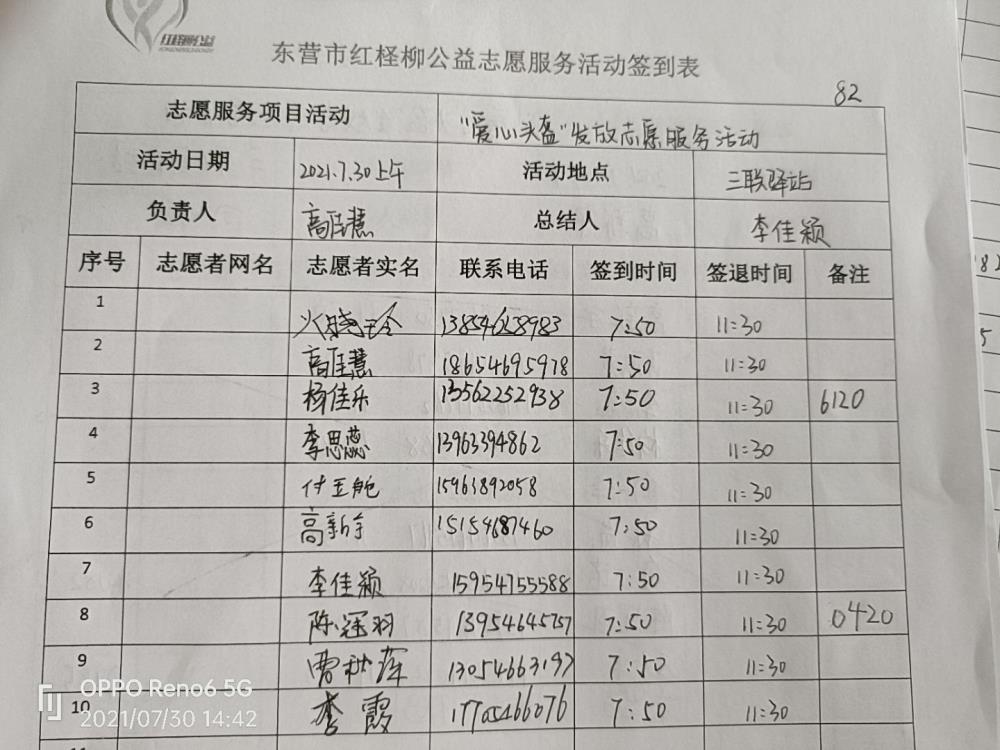 红柽柳公益
东营市红柽柳公益志愿服务活动签到表
82
志愿服务项目活动 "爱心头盔"发放志愿服务活动
活动日期 2021.7.30上午 活动地点 三联驿站
负责人 高佳慧 总结人 李佳颖
序号 志愿者网名 志愿者实名 联系电话 签到时间 签退时间 备注
1 13854658983 7:50 11:30
2 高佳慧 18654695978 7:50 11:30
3 杨佳乐 13562252938 7:50 11:30 6120
4 李思蕊 13963394862 7:50 11:30
5 15963892058 7:50 11:30
6 15154687460 7:50 11:30
7 李佳颖 15954755588 7:50 11:30
8 陈冠羽 13954645757 7:50 11:30 0420
9 13054663197 7:50 11:30
10 李霞 7:50 11:30
OPPO Reno6 5G
2021/07/30 14:42